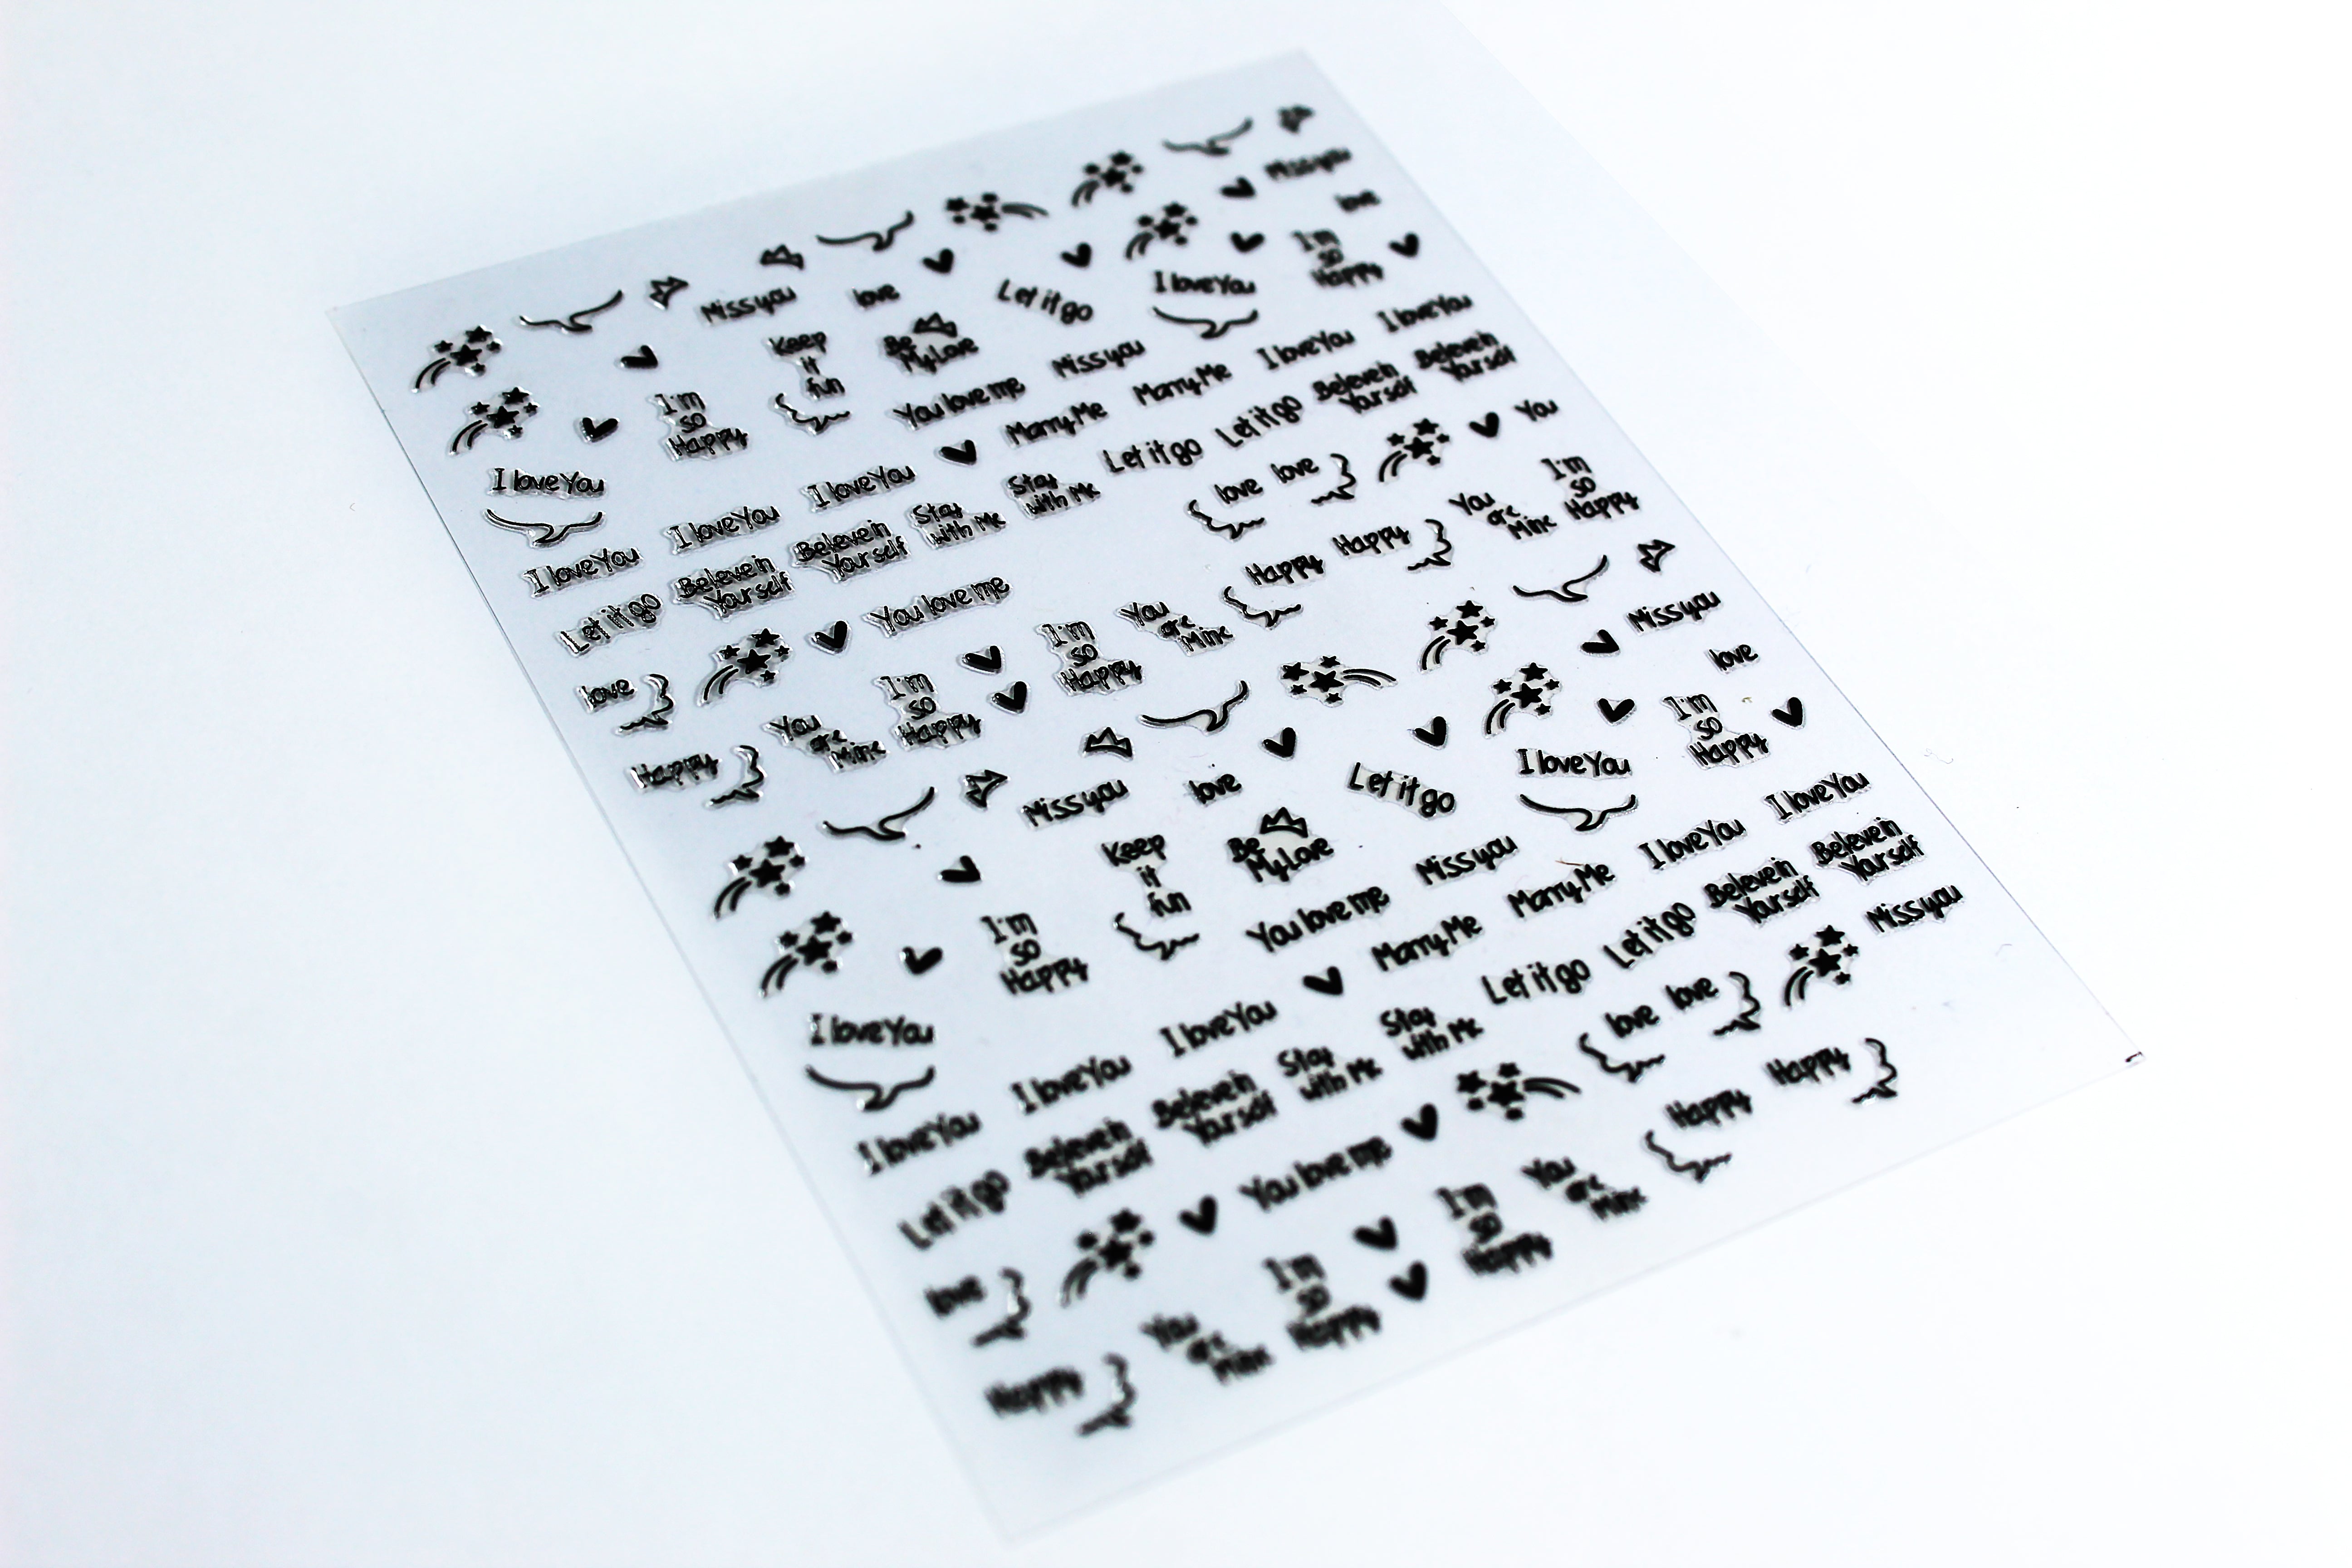 Miss you
love
Miss you
love
Let it go
I love You
I'm
so
Happy
Keep
it
fun
Be
My Love
I'm
so
Happy
You love me
Miss you
I love You
I love You
I love You
I love You
Marry Me
Marry Me
I love You
I love You
Let it go
Beleve in
Yourself
Beleve in
Yourself
Stay
with Me
Stay
with Me
Let it go
Let it go
Beleve in
Yourself
Beleve in
Yourself
love
You love me
love
love
You
Happy
You
are
Mine
I'm
so
Happy
I'm
so
Happy
You
are
Mine
Happy
Happy
You
are
Mine
I'm
so
Happy
Miss you
love
Miss you
love
Let it go
I love You
I'm
so
Happy
Keep
it
fun
Be
My Love
I'm
so
Happy
You love me
Miss you
I love You
I love You
I love You
I love You
Marry Me
Marry Me
I love You
I love You
Let it go
Beleve in
Yourself
Beleve in
Yourself
Stay
with Me
Stay
with Me
Let it go
Let it go
Beleve in
Yourself
Beleve in
Yourself
love
You love me
love
love
Miss you
Happy
You
are
Mine
I'm
so
Happy
I'm
so
Happy
You
are
Mine
Happy
Happy